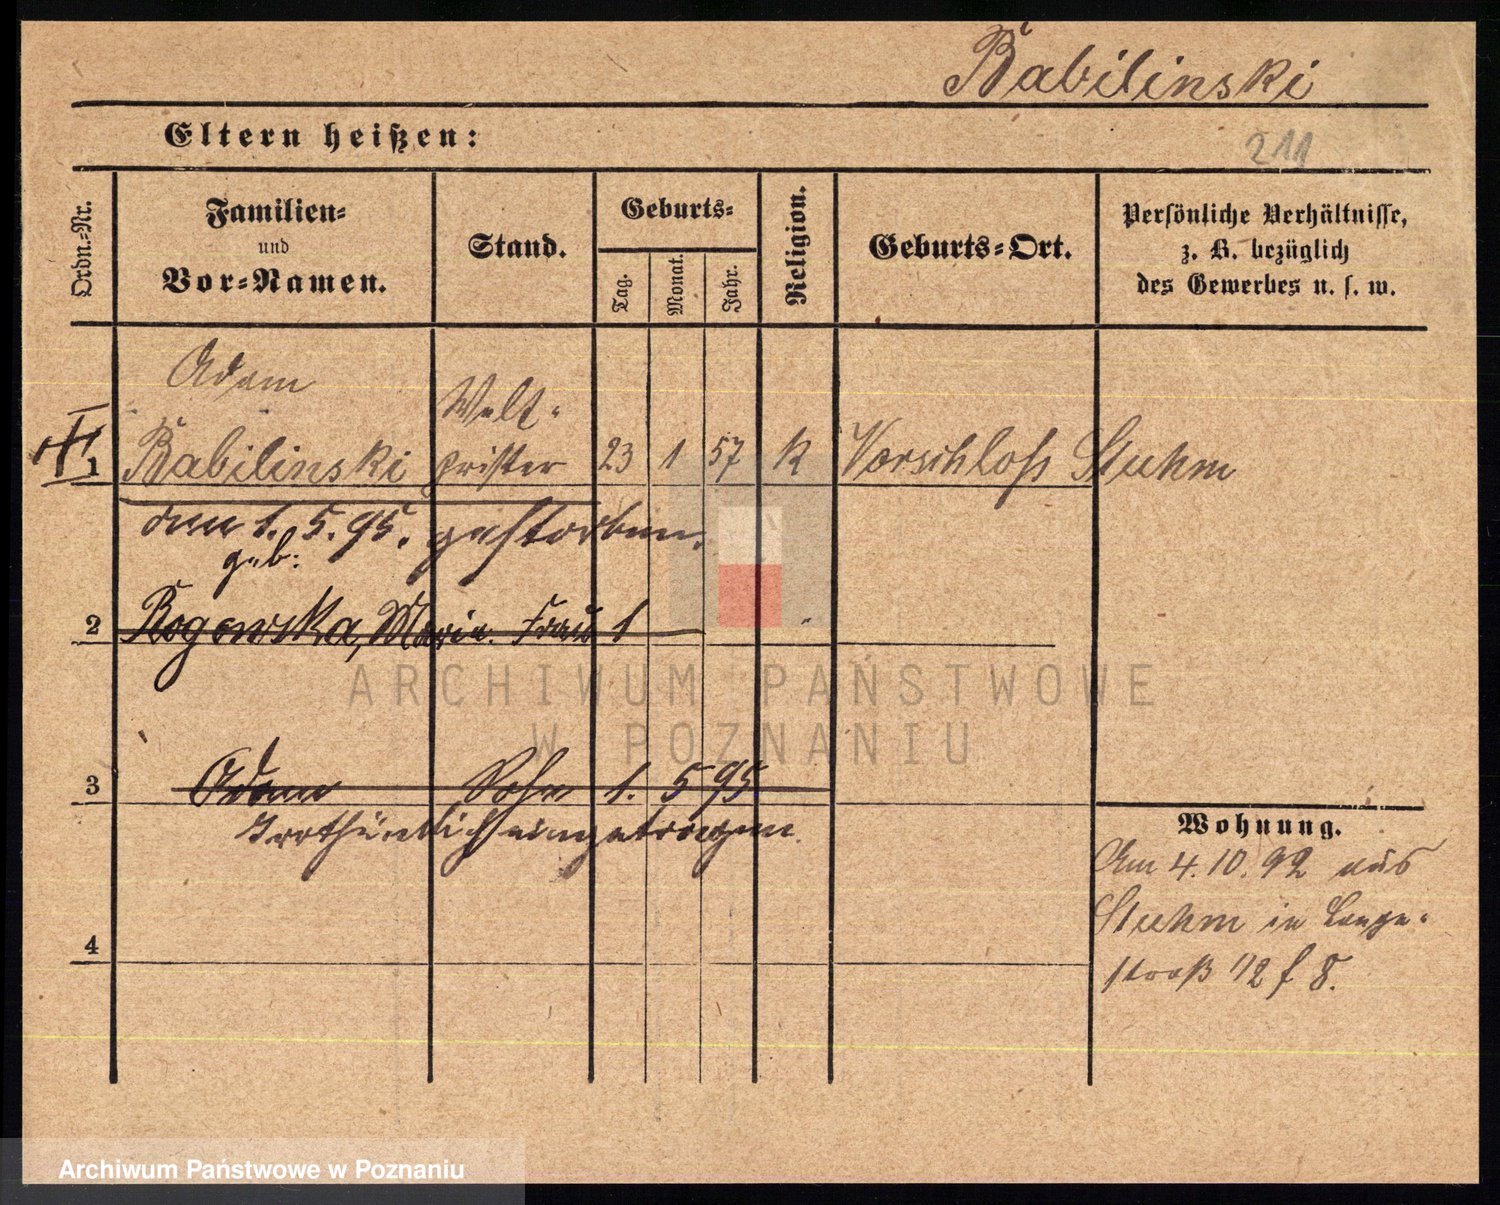 Babilinski
Eltern heißen:
211
Ordn.-Nr.
Familien-
und
Vor-Namen.
Stand.
Geburts-
Tag.
Monat.
Jahr.
Religion.
Geburts-Ort.
Persönliche Verhältnisse,
z. B. bezüglich
des Gewerbes u. s. w.
Adam
Welt-
1 Babilinski prister 23 1 57 K Vorschloß Stuhm
den 1. 5. 95. gestorben.
geb:
2 Rogowska, Marie. Frau 1
3 Adam Sohn 1. 5 95
Irrthümlich eingetragen.
4
Wohnung.
Am 4.10.92 aus
Stuhm in Lange-
straß 1/2 f 8.
ARCHIWUM PAŃSTWOWE
W POZNANIU
Archiwum Państwowe w Poznaniu